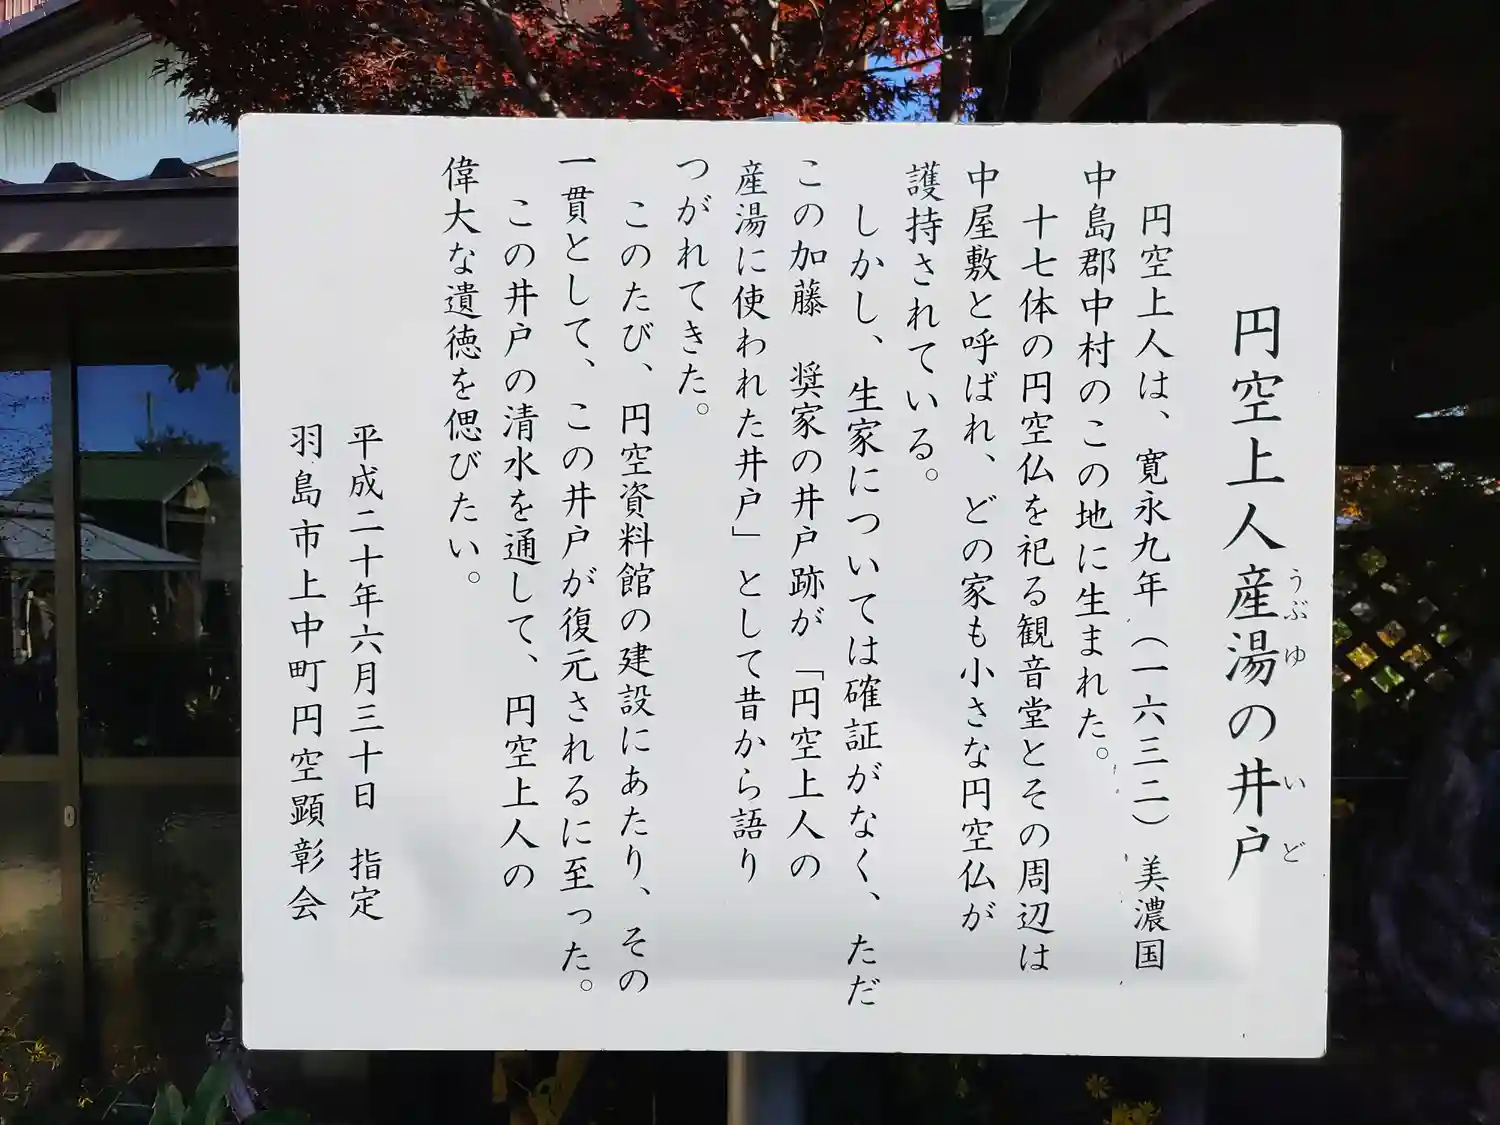 円空上人産湯の井戸
うぶゆ
いど
円空上人は、寛永九年（一六三二）美濃国
中島郡中村のこの地に生まれた。
十七体の円空仏を祀る観音堂とその周辺は
中屋敷と呼ばれ、どの家も小さな円空仏が
護持されている。
しかし、生家については確証がなく、ただ
この加藤　奨家の井戸跡が「円空上人の
産湯に使われた井戸」として昔から語り
つがれてきた。
このたび、円空資料館の建設にあたり、その
一貫として、この井戸が復元されるに至った。
この井戸の清水を通して、円空上人の
偉大な遺徳を偲びたい。
平成二十年六月三十日　指定
羽島市上中町円空顕彰会